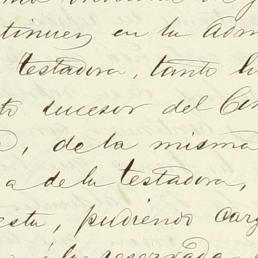 tinuen en la Adm
testadora, tanto lo
to sucesor del Con
, de la misma
a de la testadora,
esta, pudiendo carg